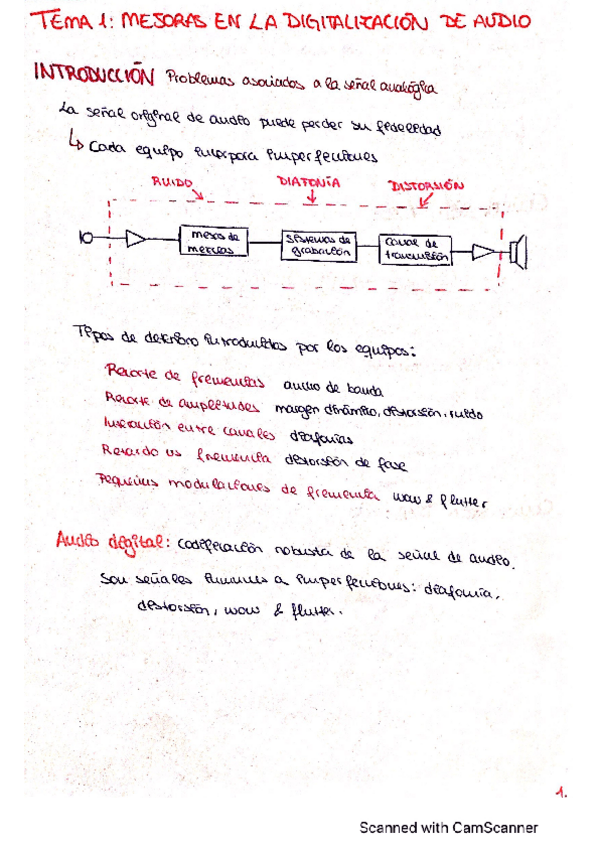 TEMA 1: MEJORAS EN LA DIGITALIZACIÓN DE AUDIO
INTRODUCCIÓN Problemas asociados a la señal analógica
La señal original de audio puede perder su fidelidad
↳ Cada equipo incorpora imperfecciones
RUIDO DIAFONÍA DISTORSIÓN
mesa de mezclas
sistemas de grabación
canal de transmisión
Tipos de deterioro introducidos por los equipos:
Recorte de frecuencias ancho de banda
Recorte de amplitudes margen dinámico, distorsión, ruido
Interacción entre canales diafonías
Retardo vs frecuencia distorsión de fase
Pequeñas modulaciones de frecuencia wow & flutter
Audio digital: codificación robusta de la señal de audio.
Son señales inmunes a imperfecciones: diafonía,
distorsión, wow & flutter.
1.
Scanned with CamScanner